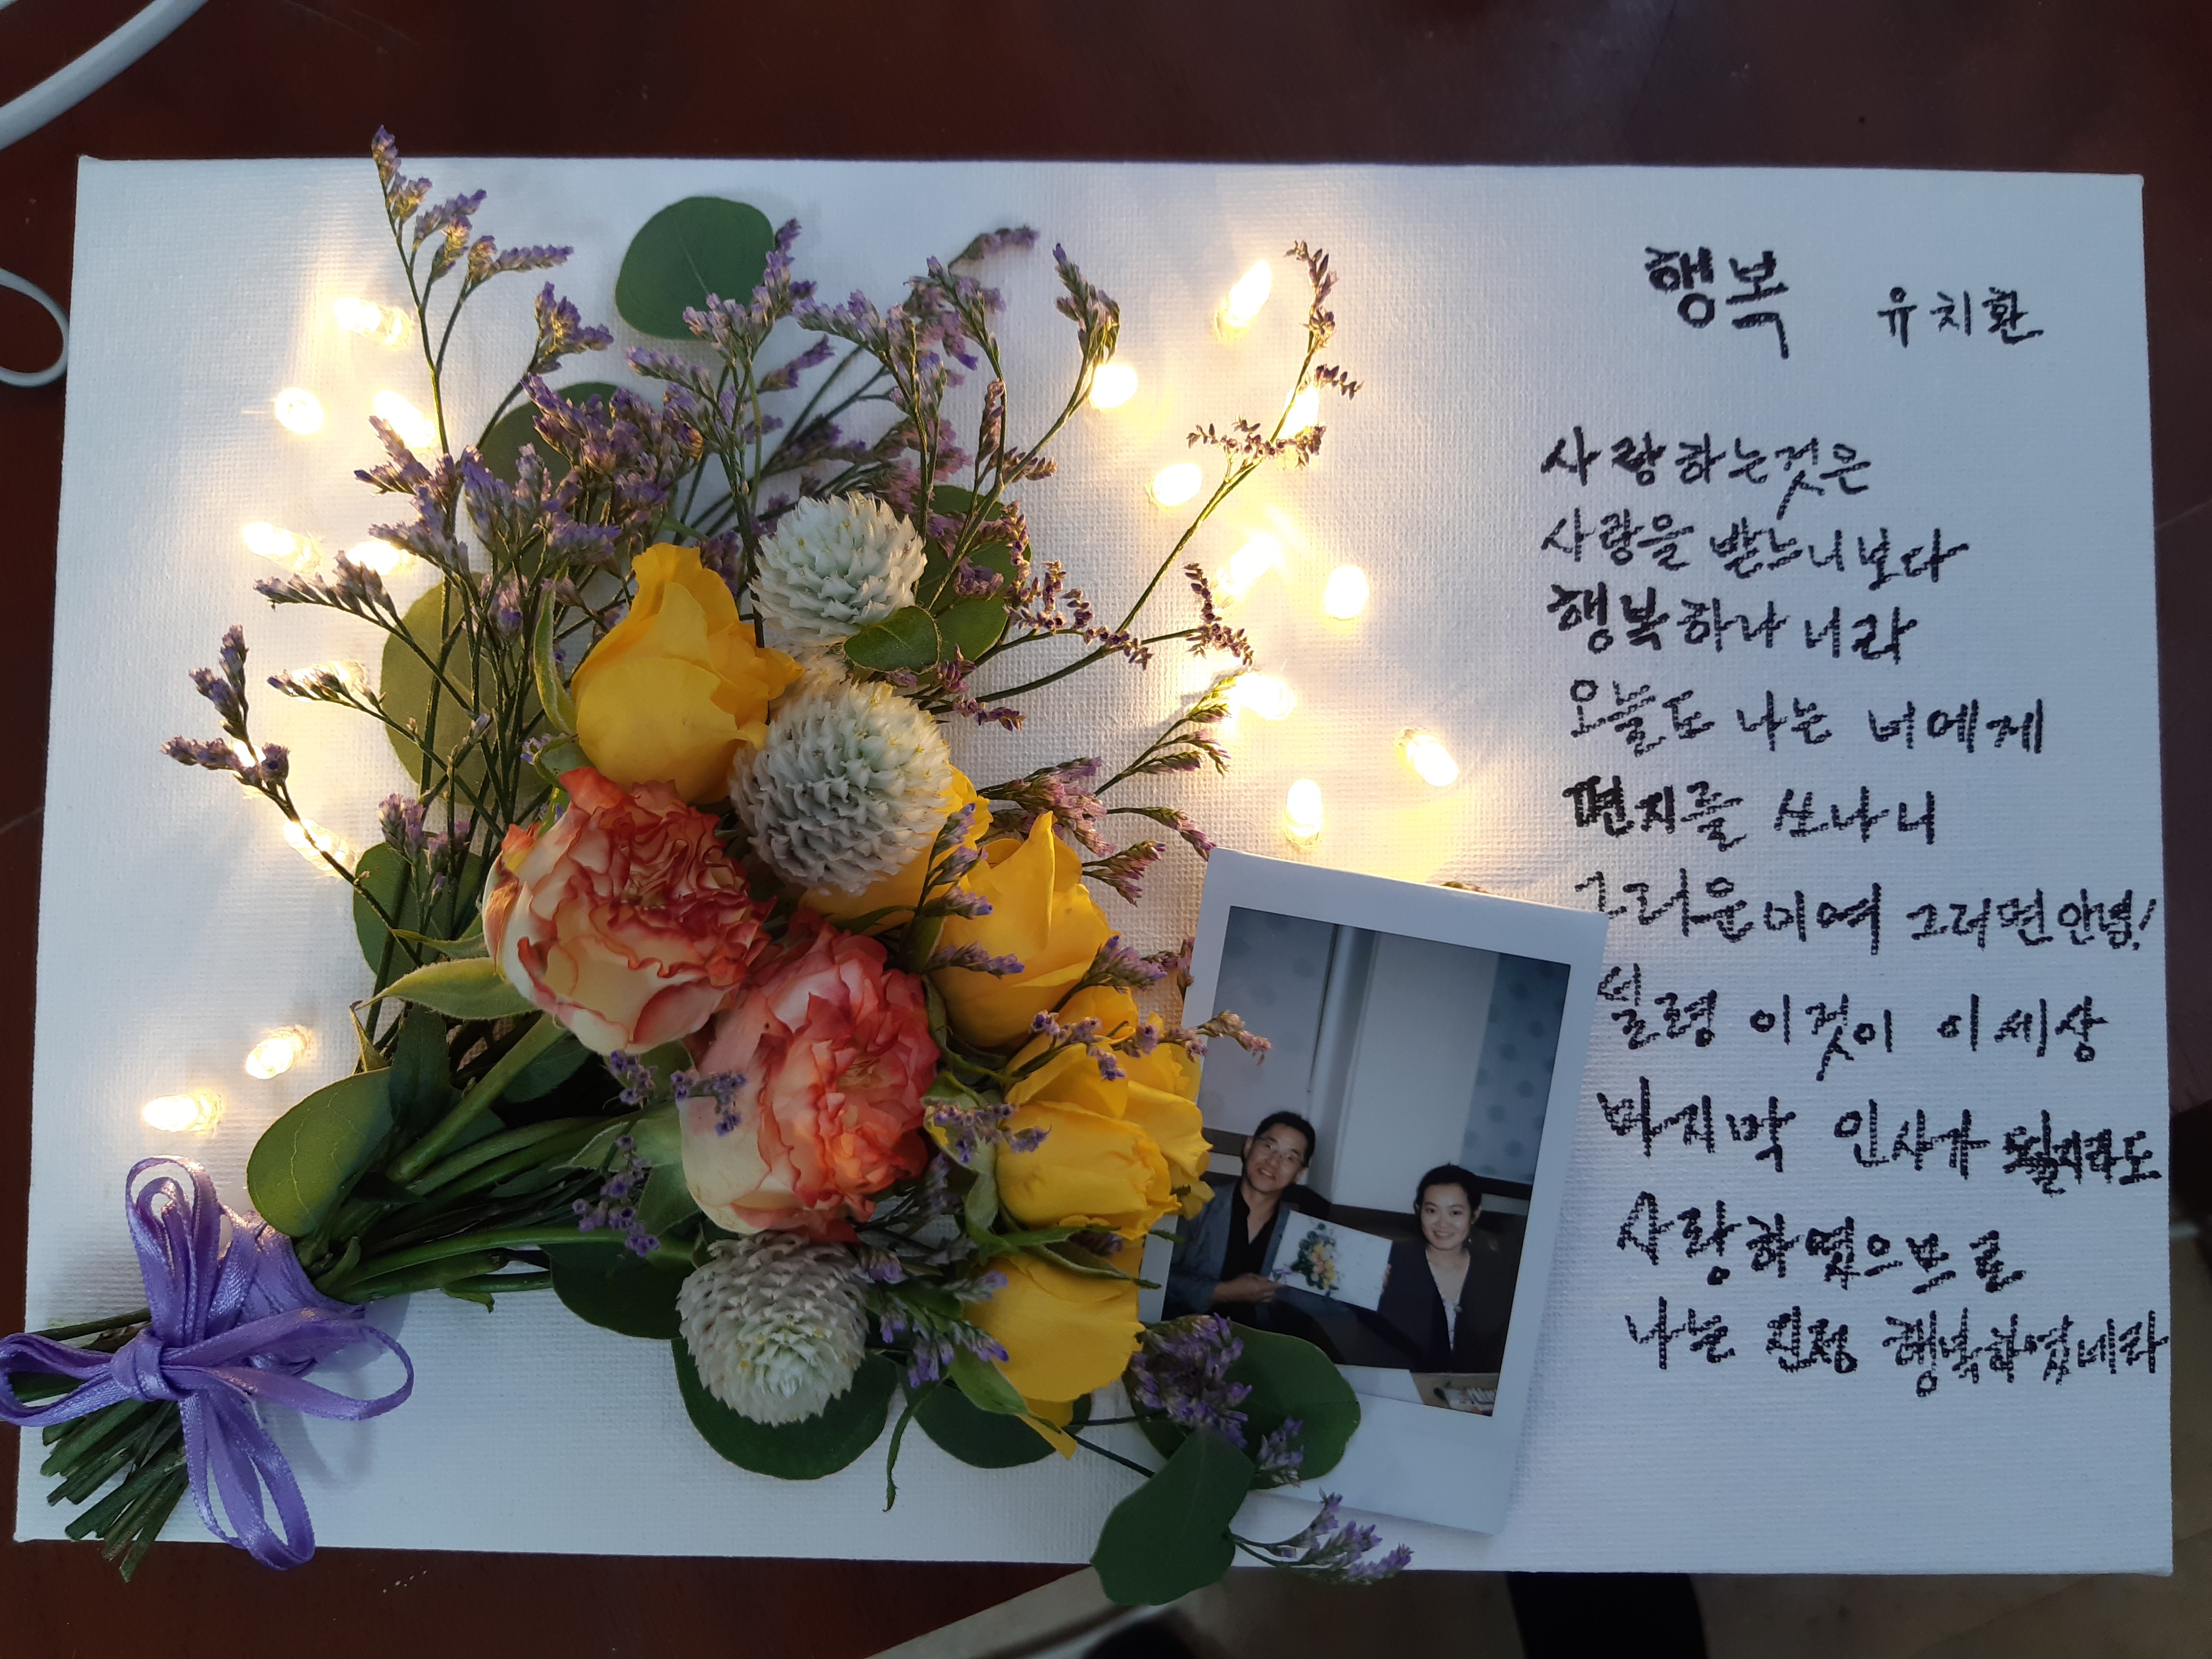 행복 유치환
사랑하는것은
사랑을 받느니보다
행복하나니라
오늘도 나는 너에게
편지를 쓰나니
그리운이여 그러면 안녕!
설령 이것이 이세상
마지막 인사가 될지라도
사랑하였으므로
나는 진정 행복하였네라